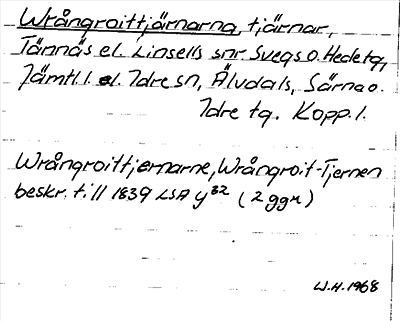 Wrångroittjärnarna, tjärnar,
Tännäs el. Linsells snr Svegs o. Hede tg,
Jämtl. l. el. Idre sn, Älvdals, Särna o.
Idre tg. Kopp. l.
Wrångroittjernarne, Wrångroit-Tjernen
beskr. till 1839 LSA y32 (2 ggr)
W.H. 1968